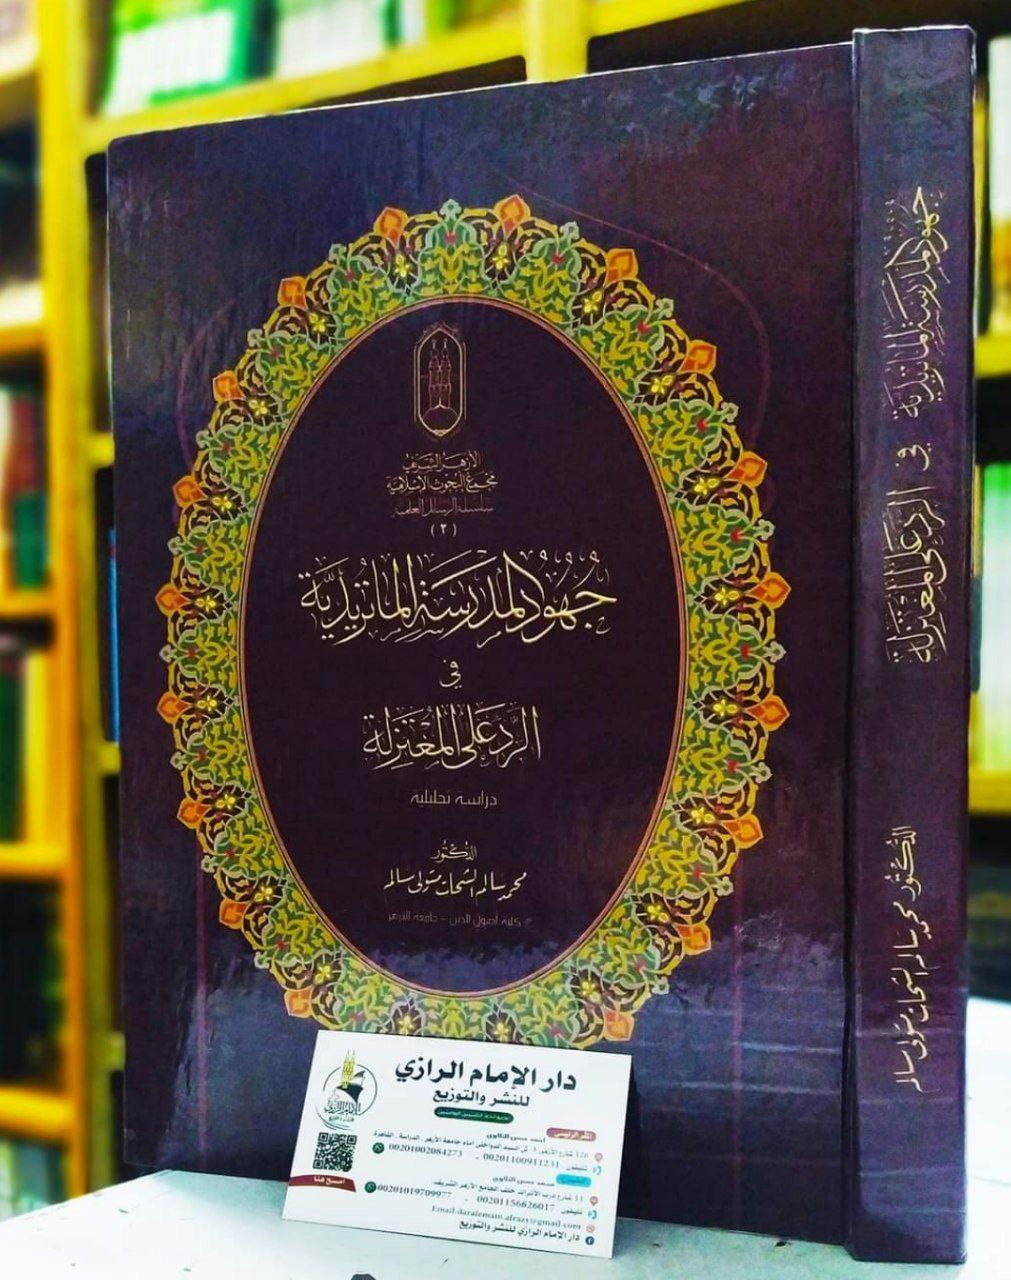 الأزهر الشريف
مجمع البحوث الإسلامية
سلسلة الرسائل العلمية
(٢)
جُهُودُ المَدرَسَةِ المَاتُرِيدِيَّة
فِي
الرَّدِّ عَلَى المُعْتَزِلَة
دراسة تحليلية
الدُّكْتُور
محمد سالم الشحات متولي سالم
كلية أصول الدين - جامعة الأزهر
جُهُودُ المَدرَسَةِ المَاتُرِيدِيَّة فِي الرَّدِّ عَلَى المُعْتَزِلَة
الدُّكْتُور محمد سالم الشحات متولي سالم
دار الإمام الرازي
للنشر والتوزيع
الإمام الرازي
امسح هنا
المقر الرئيسي
126 شارع الأزهر، 3 ش السيد الدواخلي أمام جامعة الأزهر، الدراسة، القاهرة.
تليفون 00201100911231 - 00201002084273
11 شارع درب الأتراك خلف الجامع الأزهر الشريف.
تليفون 00201156626017 - 00201019709977
Email:daralemam.alrazy@gmail.com
دار الإمام الرازي للنشر والتوزيع